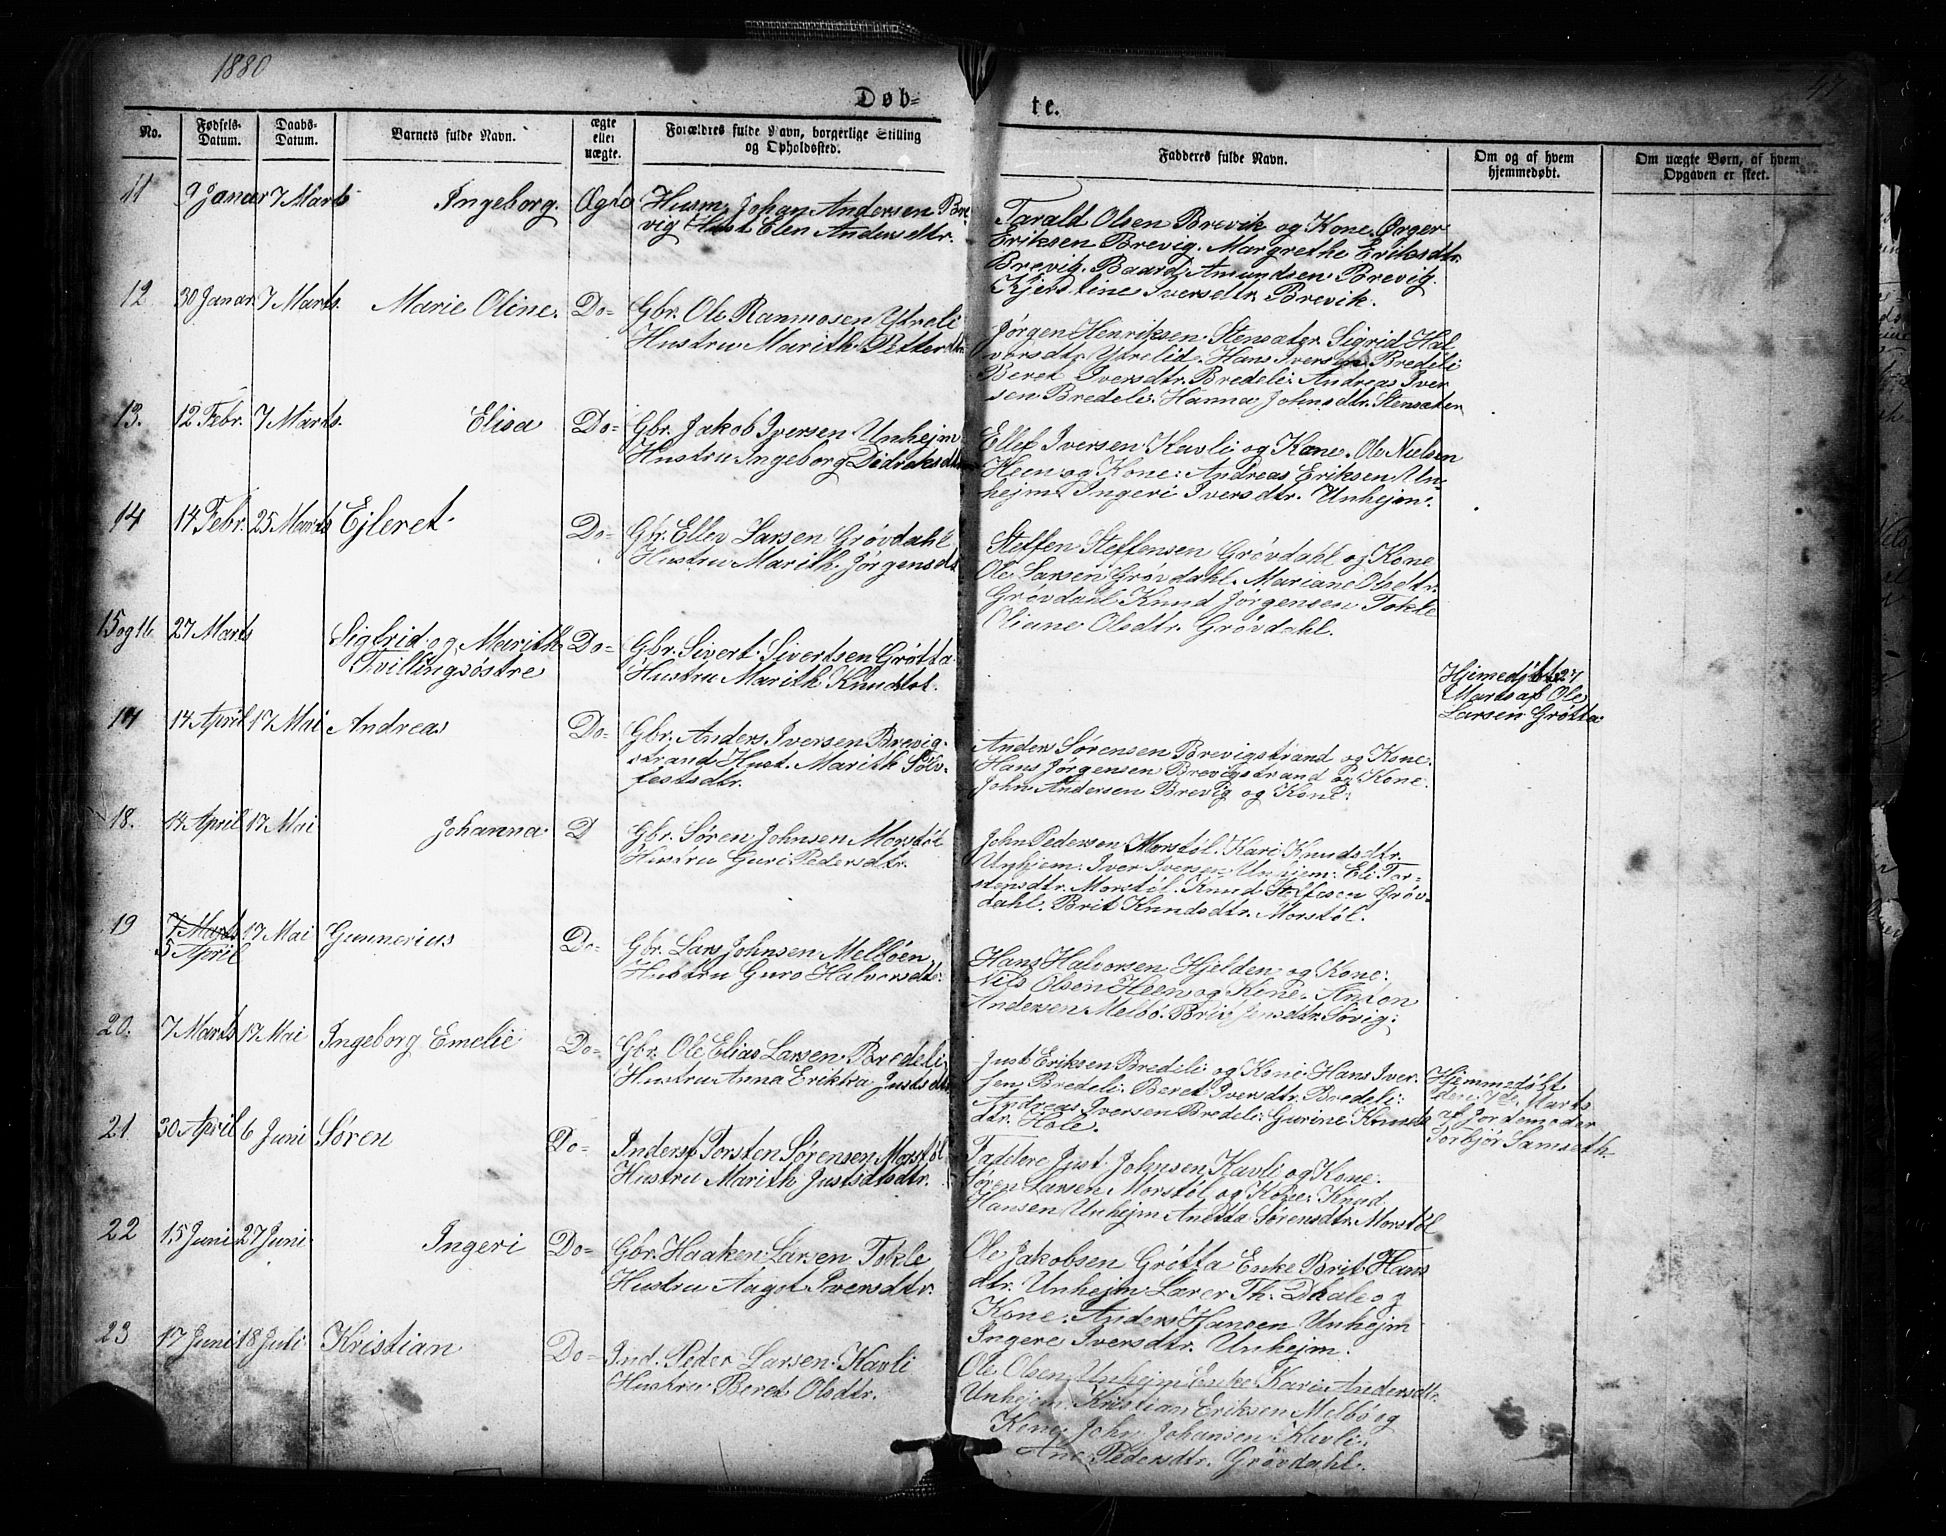 1880
47
Døb=
te.
No.
Fødsels-
Datum.
Daabs-
Datum.
Barnets fulde Navn.
ægte
eller
uægte.
Forældres fulde Navn, borgerlige Stilling
og Opholdssted.
Faddernes fulde Navn.
Om og af hvem
hjemmedøbt.
Om uægte Børn, af hvem
Opgaven er skeet.
11 9 Januar 7 Marts Ingeborg. Ægte
Husm. Johan Andersen Bre
vig Hust. Elen Andersdtr.
Tarald Olsen Brevik og Kone. Ørger
Eriksen Brevig. Margrethe Eriksdtr.
Brevig. Baard Amundsen Brevig.
Kjerstine Iversdtr. Brevik.
12 30 Januar 7 Marts. Marie Oline. Do=
Gbr. Ole Rasmusen Ytreli
Hustru Marith Petterdtr.
Jørgen Henriksen Stensæter. Sigrid Hal
vorsdtr. Ytrelid. Hans Iversen Bredeli
Beret Iversdtr. Bredeli. Andreas Iver
sen Bredeli. Hanna Johnsdtr. Stensæter
13. 12 Febr. 7 Marts. Elisa Do=
Gbr. Jakob Iversen Unhejm
Hustru Ingeborg Didriksdtr.
Ellef Iversen Kavli og Kone. Ole Nielsen
Heen og Kone. Andreas Eriksen Un=
hejm. Ingeri Iversdtr. Unhejm.
14 14 Febr. 25 Marts Ejleret. Do=
Gbr. Ellev Larsen Grøvdahl
Hustru Marith Jørgensdt
Steffen Steffensen Grøvdahl og Kone
Ole Larsen Grøvdahl. Mariane Olsdtr.
Grøvdahl Knud Jørgensen Tokle
Oliane Olsdtr. Grøvdahl.
15 og 16. 27 Marts Sigfrid og Marith Do=
Tvillingsøstre
Gbr. Sivert Sivertsen Grøtta
Hustru Marith Knudsdt.
Hjemedøbte 27
Marts af Ole
Larsen Grøtta
17 14 April 17 Mai Andreas Do=
Gbr. Anders Iversen Brevig=
strand Hust. Marith Sølv=
festsdtr.
Anders Sørensen Brevigstrand og Kone.
Hans Jørgensen Brevigstrand og Kone.
John Andersen Brevig og Kone.
18. 14 April 17 Mai Johanna D
Gbr. Søren Johnsen Morstøl
Hustru Guri Pedersdtr.
John Pedersen Morstøl. Kari Knudsdtr.
Unhjem. Iver Iversen Unhjem. Eli Tor=
stensdtr. Morstøl. Knud Steffesen Grøv
dahl. Brit Knudsdtr. Morstøl.
19 7 Marts 17 Mai Gunnerius Do=
5 April
Gbr. Lars Johnsen Melbøen
Hustru Guro Halvorsdtr.
Hans Halvorsen Hjelden og Kone.
Nils Olsen Heen og Kone. Anton
Andersen Melbø. Brit Jensdtr. Søvig.
20. 7 Marts 17 Mai Ingeborg Emelie Do=
Gbr. Ole Elias Larsen Bredeli
Hustru Anna Eriktra Justsdtr
Just Eriksen Bredeli og Kone. Hans Iver.
sen Bredeli. Beret Iversdtr. Bredeli.
Andreas Iversen Bredeli. Gurine Knuds
dtr. Hole.
Hjemmedøbt
den 7de Marts
af Jordemoder
Torbjør Samseth.
21. 30 April 6 Juni Søren Do=
Inderst Torsten Sørensen Morstøl
Hustru Marith Justsdtsdtr.
Faddere Just Johnsen Kavli og Kone.
Søren Larsen Morstøl og Kone. Knud
Hansen Unhejm Anetta Sørensdtr. Morstøl
22 15 Juni 27 Juni Ingeri Do=
Gbr. Haaken Larsen Tokle
Hustru Aagot Iversdtr.
Ole Jakobsen Grøtta Enke Brit Hans
dtr. Unhejm Lærer Th. Dhale og
Kone. Anders Hansen Unhejm
Ingere Iversdtr. Unhejm.
23 17 Juni 18 Juli Kristian Do=
Ind. Peder Larsen Kavli
Hustru Beret Olsdtr.
Ole Olsen Unhejm Enke Kari Andersdtr.
Unhejm. Kristian Eriksen Melbø og
Kone. John Johansen Kavli.
Ane Pedersdtr. Grøvdahl.